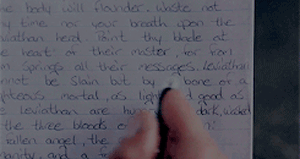 e body will flounder. Waste not
time nor your breath upon the
viathan herd. Point thy blade at
e heart of their master, for from
m springs all their messengers. Leviathan
nnot be slain but by a bone of a
ghteous mortal, as light and good as
e Leviathan are hung dark, wicked
the three bloods of
fallen angel, the
manity, and a f